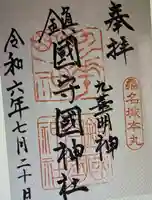 奉拝
桑名城本丸
明神
鎮國守國神社
令和六年七月二十日